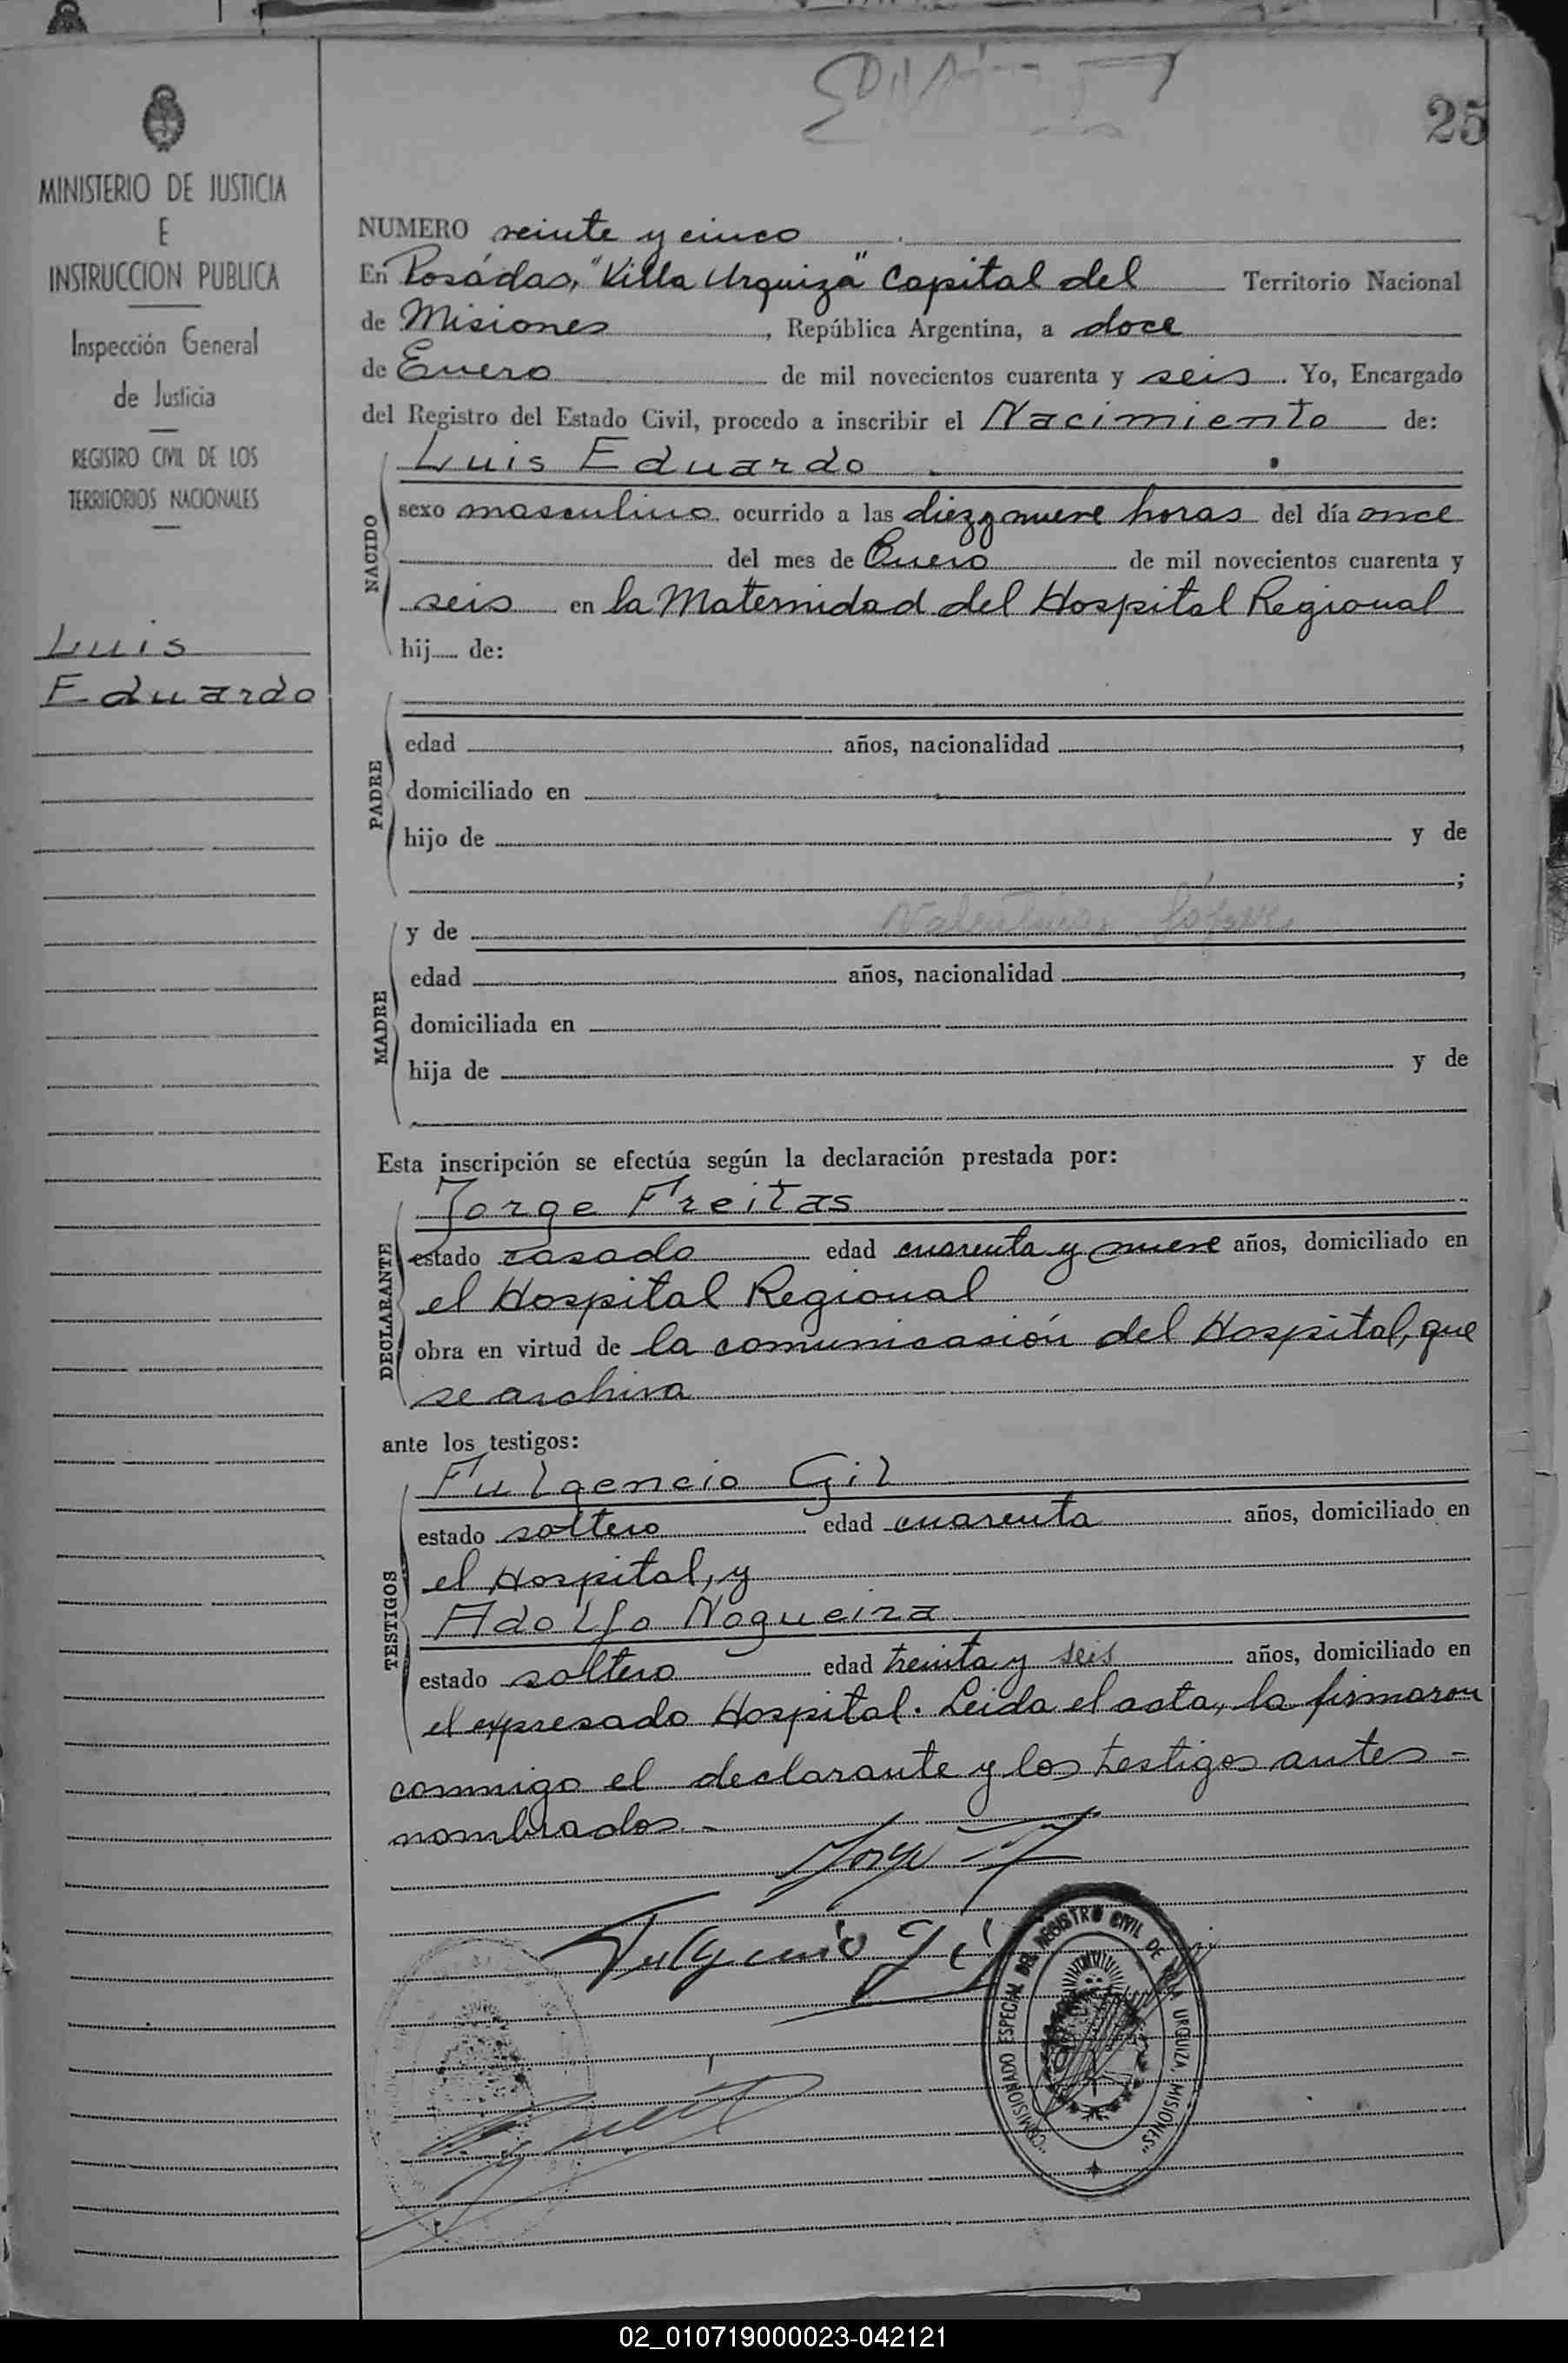 25
MINISTERIO DE JUSTICIA
E
INSTRUCCION PUBLICA
Inspección General
de Justicia
REGISTRO CIVIL DE LOS
TERRITORIOS NACIONALES
Luis
Eduardo
NUMERO veinte y cinco
En Posádas, "Villa Urquiza" Capital del Territorio Nacional
de Misiones, República Argentina, a doce
de Enero de mil novecientos cuarenta y seis. Yo, Encargado
del Registro del Estado Civil, procedo a inscribir el Nacimiento de:
NACIDO
Luis Eduardo
sexo masculino ocurrido a las diez y nueve horas del día once
del mes de Enero de mil novecientos cuarenta y
seis en la Maternidad del Hospital Regional
hij de:
PADRE
edad años, nacionalidad ,
domiciliado en
hijo de y de
;
MADRE
y de
edad años, nacionalidad ,
domiciliada en
hija de y de
Esta inscripción se efectúa según la declaración prestada por:
DECLARANTE
Jorge Freitas
estado casado edad cuarenta y nueve años, domiciliado en
el Hospital Regional
obra en virtud de la comunicasión del Hospital, que
se archiva
ante los testigos:
TESTIGOS
Fulgencio Gil
estado soltero edad cuarenta años, domiciliado en
el Hospital, y
Adolfo Nogueira
estado soltero edad treinta y seis años, domiciliado en
el expresado Hospital. Leida el acta, la firmaron
conmigo el declarante y los testigos antes-
nombrados.-
Jorge F
Fulgencio Gil
"COMISIONADO ESPECIAL DEL REGISTRO CIVIL DE VILLA URQUIZA, MISIONES"
02_010719000023-042121